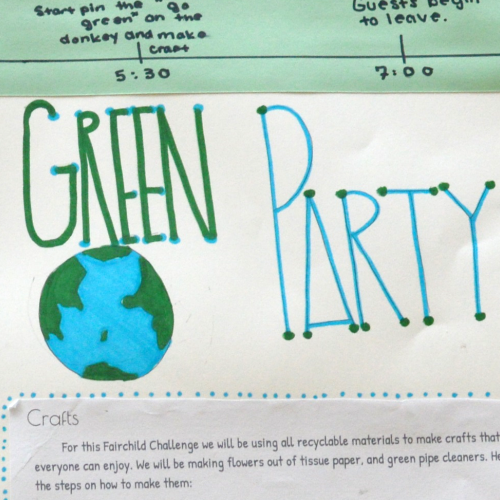 Start pin the "go
green" on the
donkey and make
craft
Guests begin
to leave.
5:30
7:00
GREEN
PARTY
Crafts
For this Fairchild Challenge we will be using all recyclable materials to make crafts that
everyone can enjoy. We will be making flowers out of tissue paper, and green pipe cleaners. He
the steps on how to make them: